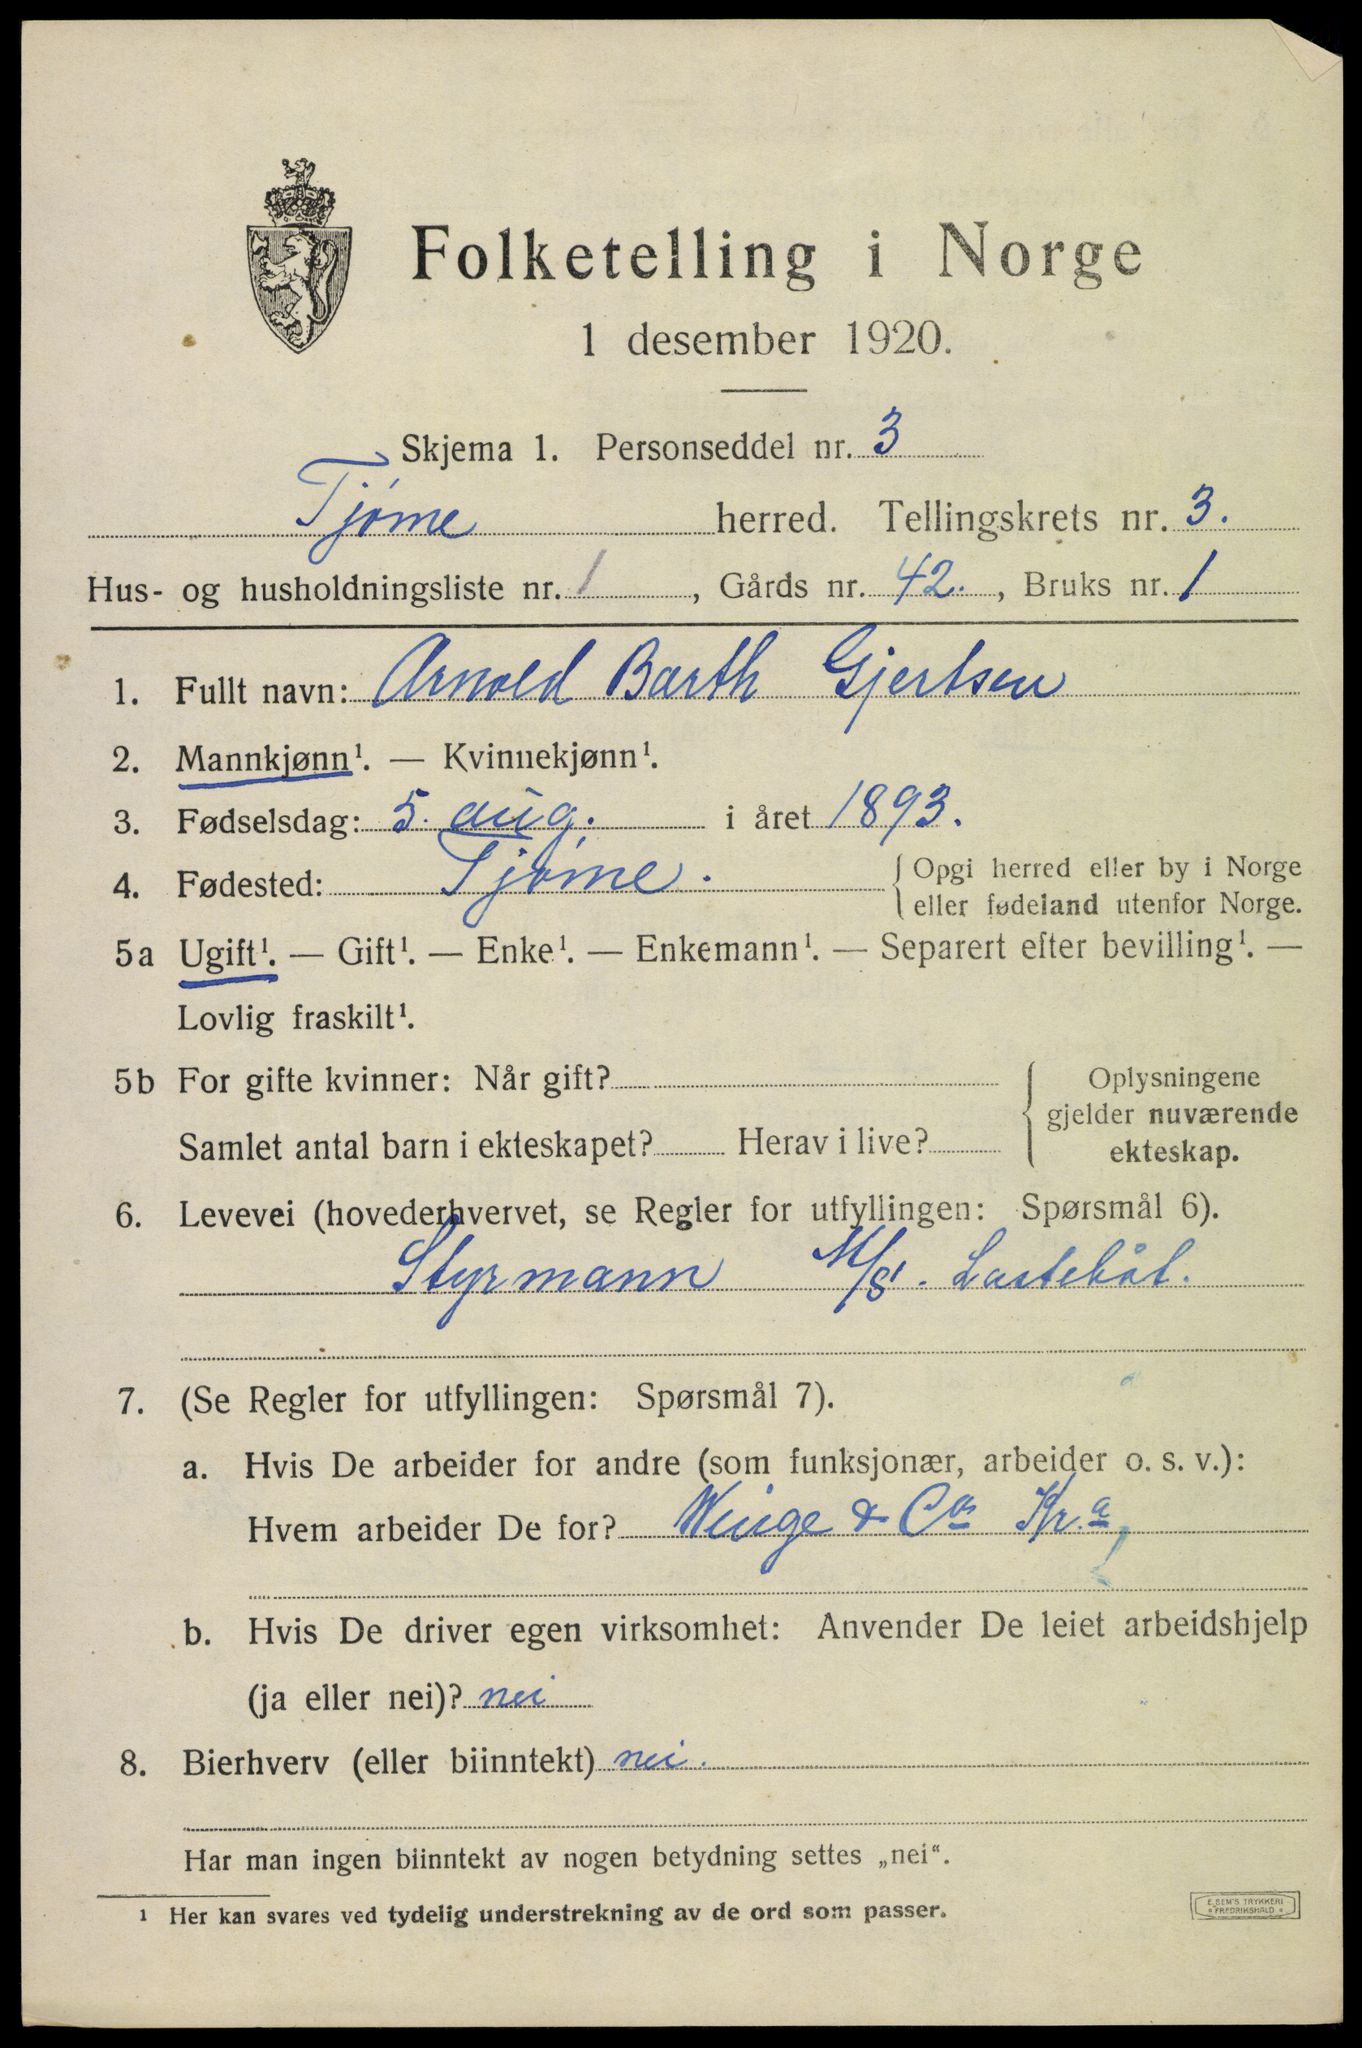 Folketelling i Norge
1 desember 1920.
Skjema 1. Personseddel nr. 3
Tjøme herred. Tellingskrets nr. 3.
Hus- og husholdningsliste nr. 1, Gårds nr. 42., Bruks nr. 1
1. Fullt navn: Arnold Barth Gjertsen
2. Mannkjønn¹. — Kvinnekjønn¹.
3. Fødselsdag: 5. aug. i året 1893.
4. Fødested: Tjøme. { Opgi herred eller by i Norge
eller fødeland utenfor Norge.
5a Ugift¹. — Gift¹. — Enke¹. — Enkemann¹. — Separert efter bevilling¹. —
Lovlig fraskilt¹.
5b For gifte kvinner: Når gift? { Oplysningene
gjelder nuværende
Samlet antal barn i ekteskapet? Herav i live? ekteskap.
6. Levevei (hovederhvervet, se Regler for utfyllingen: Spørsmål 6).
Styrmann M/S. Lastebåt.
7. (Se Regler for utfyllingen: Spørsmål 7).
a. Hvis De arbeider for andre (som funksjonær, arbeider o. s. v.):
Hvem arbeider De for? Winge & Co Kr.a
b. Hvis De driver egen virksomhet: Anvender De leiet arbeidshjelp
(ja eller nei)? nei
8. Bierhverv (eller biinntekt) nei.
Har man ingen biinntekt av nogen betydning settes „nei“.
¹ Her kan svares ved tydelig understrekning av de ord som passer.
E. SEM'S TRYKKERI
FREDRIKSHALD